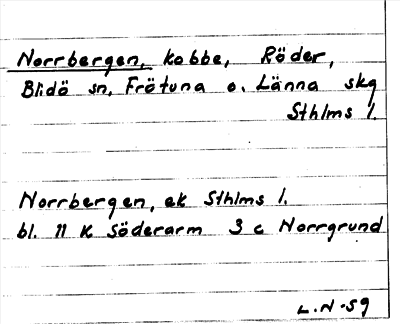 Norrbergen, kobbe, Röder,
Blidö sn, Frötuna o. Länna skg
Sthlms l.
Norrbergen, ek Sthlms l.
bl. 11 K Söderarm 3 c Norrgrund
L.N-59